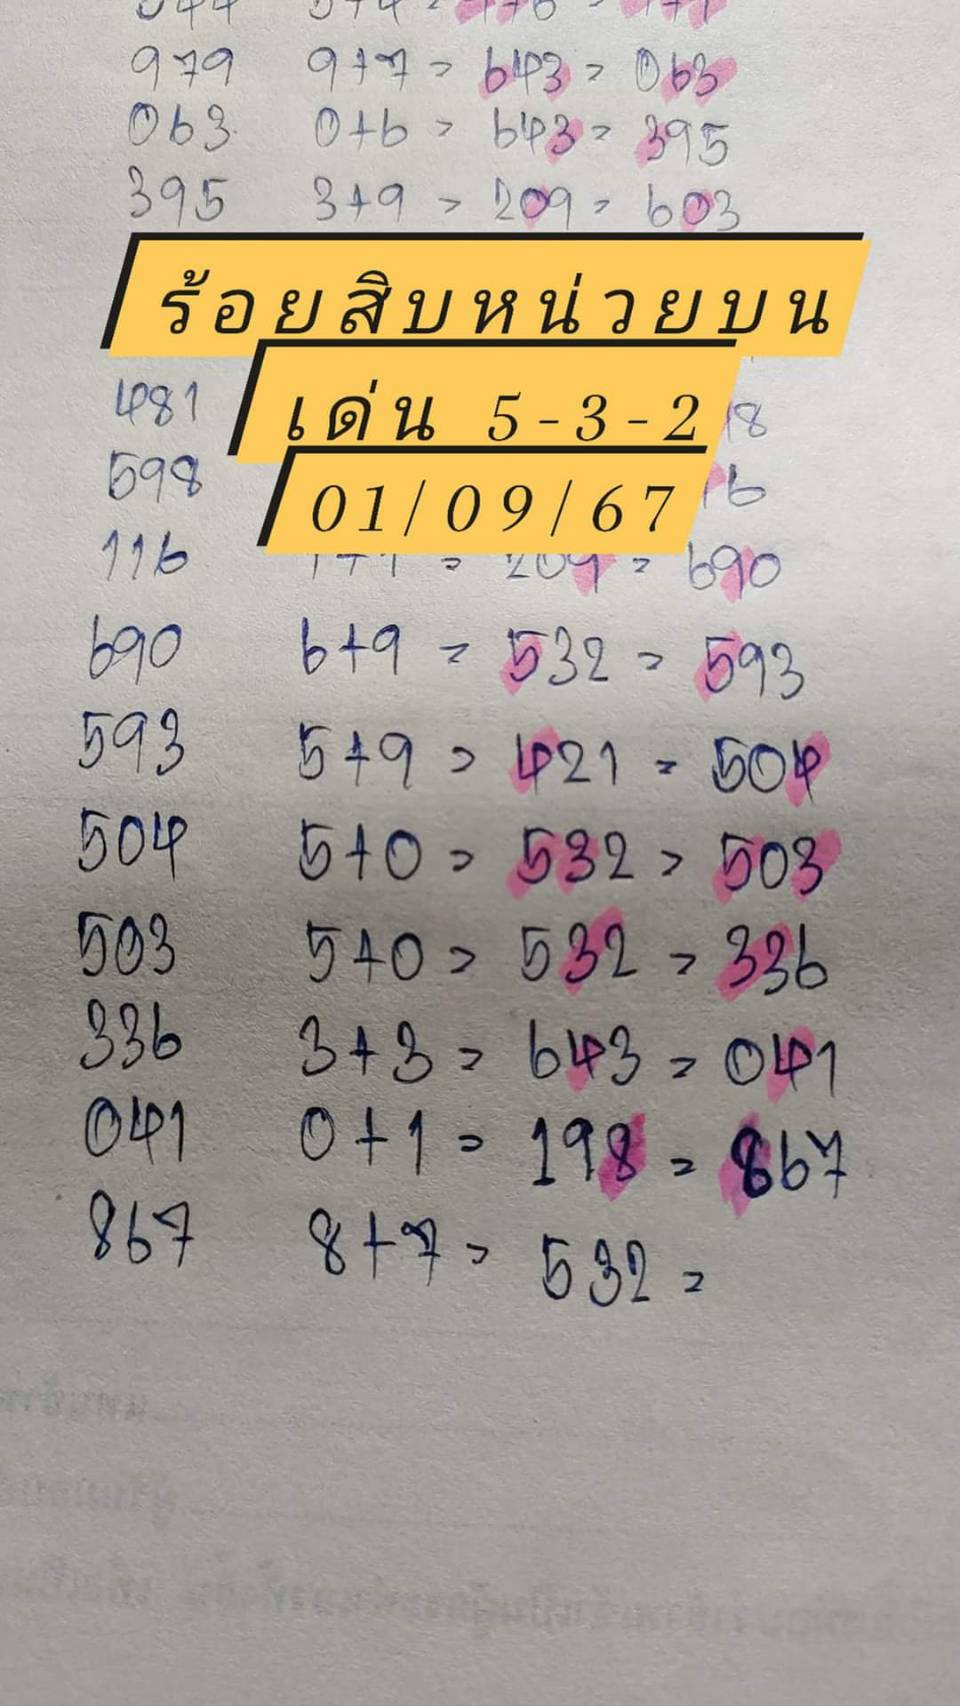 979 9+7 = 643 = 063
063 0+6 = 643 = 395
395 3+9 = 209 = 603
ร้อยสิบหน่วยบน
481 เด่น 5-3-2 18
598 16
01/09/67
116 1+1 = 209 = 690
690 6+9 = 532 = 593
593 5+9 = 421 = 504
504 5+0 = 532 = 503
503 5+0 = 532 = 336
336 3+3 = 643 = 041
041 0+1 = 198 = 867
867 8+7 = 532 =